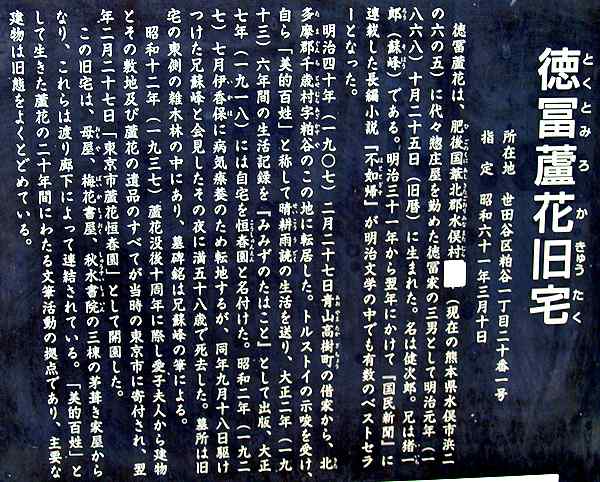 徳冨蘆花旧宅
とくとみろかきゅうたく
所在地 世田谷区粕谷一丁目二十番一号
指定 昭和六十一年三月十日
徳冨蘆花は、肥後国葦北郡水俣村
(現在の熊本県水俣市浜二
の六の五)に代々惣庄屋を勤めた徳冨家の三男として明治元年(一
八六八)十月二十五日(旧暦)に生まれた。名は健次郎。兄は猪一
郎(蘇峰)である。明治三十一年から翌年にかけて『国民新聞』に
連載した長編小説『不如帰』が明治文学の中でも有数のベストセラ
ーとなった。
明治四十年(一九〇七)二月二十七日青山高樹町の借家から、北
多摩郡千歳村字粕谷のこの地に転居した。トルストイの示唆を受け、
自ら「美的百姓」と称して晴耕雨読の生活を送り、大正二年(一九
十三)六年間の生活記録を『みみずのたはこと』として出版、大正
七年(一九一八)には自宅を恒春園と名付けた。昭和二年(一九二
七)七月伊香保に病気療養のため転地するが、同年九月十八日駆け
つけた兄蘇峰と会見したその夜に満五十八歳で死去した。墓所は旧
宅の東側の雑木林の中にあり、墓碑銘は兄蘇峰の筆による。
昭和十二年(一九三七)蘆花没後十周年に際し愛子夫人から建物
とその敷地及び蘆花の遺品のすべてが当時の東京市に寄付され、翌
年二月二十七日「東京市蘆花恒春園」として開園した。
この旧宅は、母屋、梅花書屋、秋水書院の三棟の茅葺き家屋から
なり、これらは渡り廊下によって連結されている。「美的百姓」と
して生きた蘆花の二十年間にわたる文筆活動の拠点であり、主要な
建物は旧態をよくとどめている。